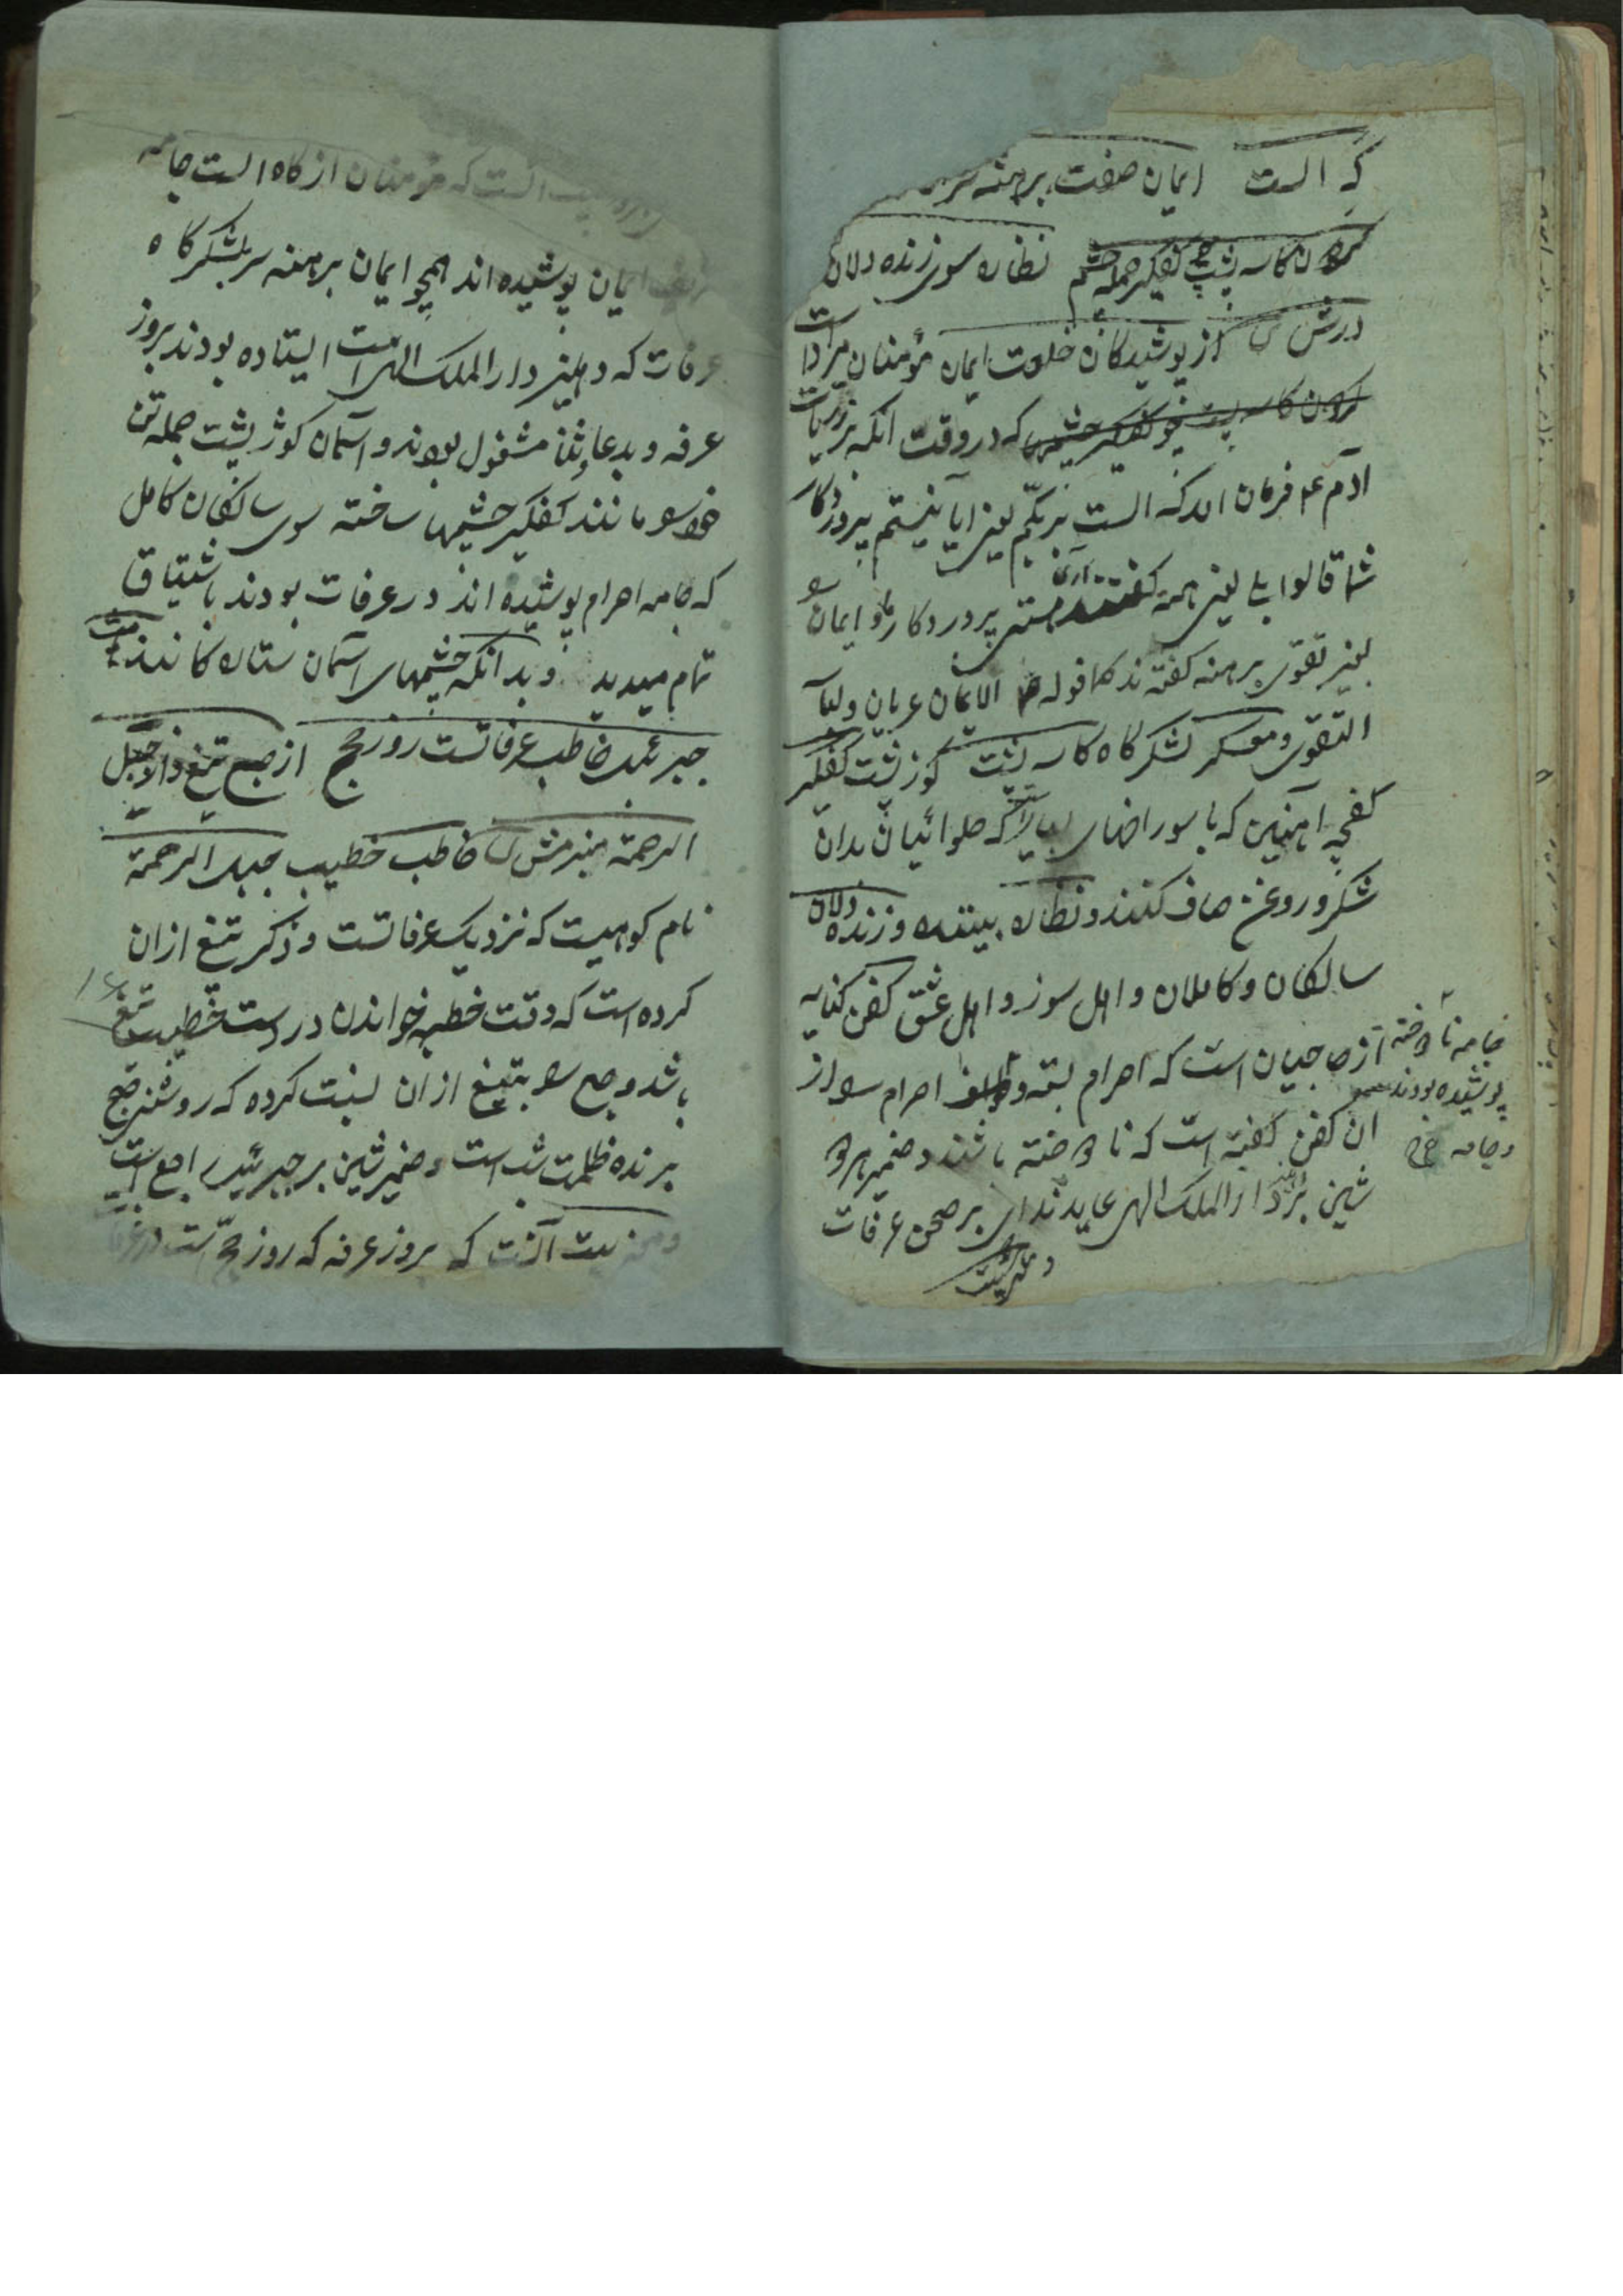 که الست ایمان صفت برهنه سر
گردون کاسه پشت کفگیر جمله چشم نظاره سوی زنده دلان
درش از پوشیدگان خلعت ایمان مؤمنان مراد است
گردون کاسه پشت چو کفگیر چشم که در وقت آنکه بر ذریات
آدم ع م فرمان آمد که الست بربکم یعنی آیا نیستم پروردگار
شما قالوا بلی یعنی همه گفتند آری هستی پروردگار ما و ایمان
بغیر تقوی برهنه گفته اند کما قوله الایمان عریان ولباسه
التقوی و معسکر لشکر گاه کاسه پشت کوز پشت کفگیر
کفچه آهنین که با سوراخهای بسیار که حلوائیان بدان
شکر و روغن صاف کنند و نظاره بیننده و زنده دلان
سالکان و کاملان و اهل سوز و اهل عشق کفن کنایه
از حاجیان است که احرام بسته و احرام را از
ان کفن گفته است که نادوخته باشند و ضمیر هر دو
شین بر دار الملک الهی عاید ای بر صحن عرفات
جامه نادوخته
پوشیده بودند
و جامه
الست که مؤمنان از گاه الست جامه
ایمان پوشیده اند همچو ایمان برهنه سر بلشکر گاه
عرفات که دهلیز دار الملک الهی است ایستاده بودند بروز
عرفه و بدعا و ثنا مشغول بودند و آسمان کوژ پشت جمله تن
خود را مانند کفگیر چشمها ساخته سوی سالکان کامل
که جامه احرام پوشیده اند در عرفات بودند باشتیاق
تمام میدید و بدانکه چشمهای آسمان ستارگانند
جبرئیل خاطب عرفاتست روز حج از صبح تیغ و از جبل
الرحمة منبرش خاطب خطیب جبل الرحمة
نام کوهیست که نزدیک عرفاتست و ذکر تیغ ازان
کرده است که وقت خطبه خواندن در دست خطیب تیغ
باشد و صبح را بتیغ ازان نسبت کرده که روشنی صبح
برنده ظلمت شب است و ضمیر شین بر جبرئیل راجع است
و معنی بیت آنست که بروز عرفه که روز حج است در عرفات